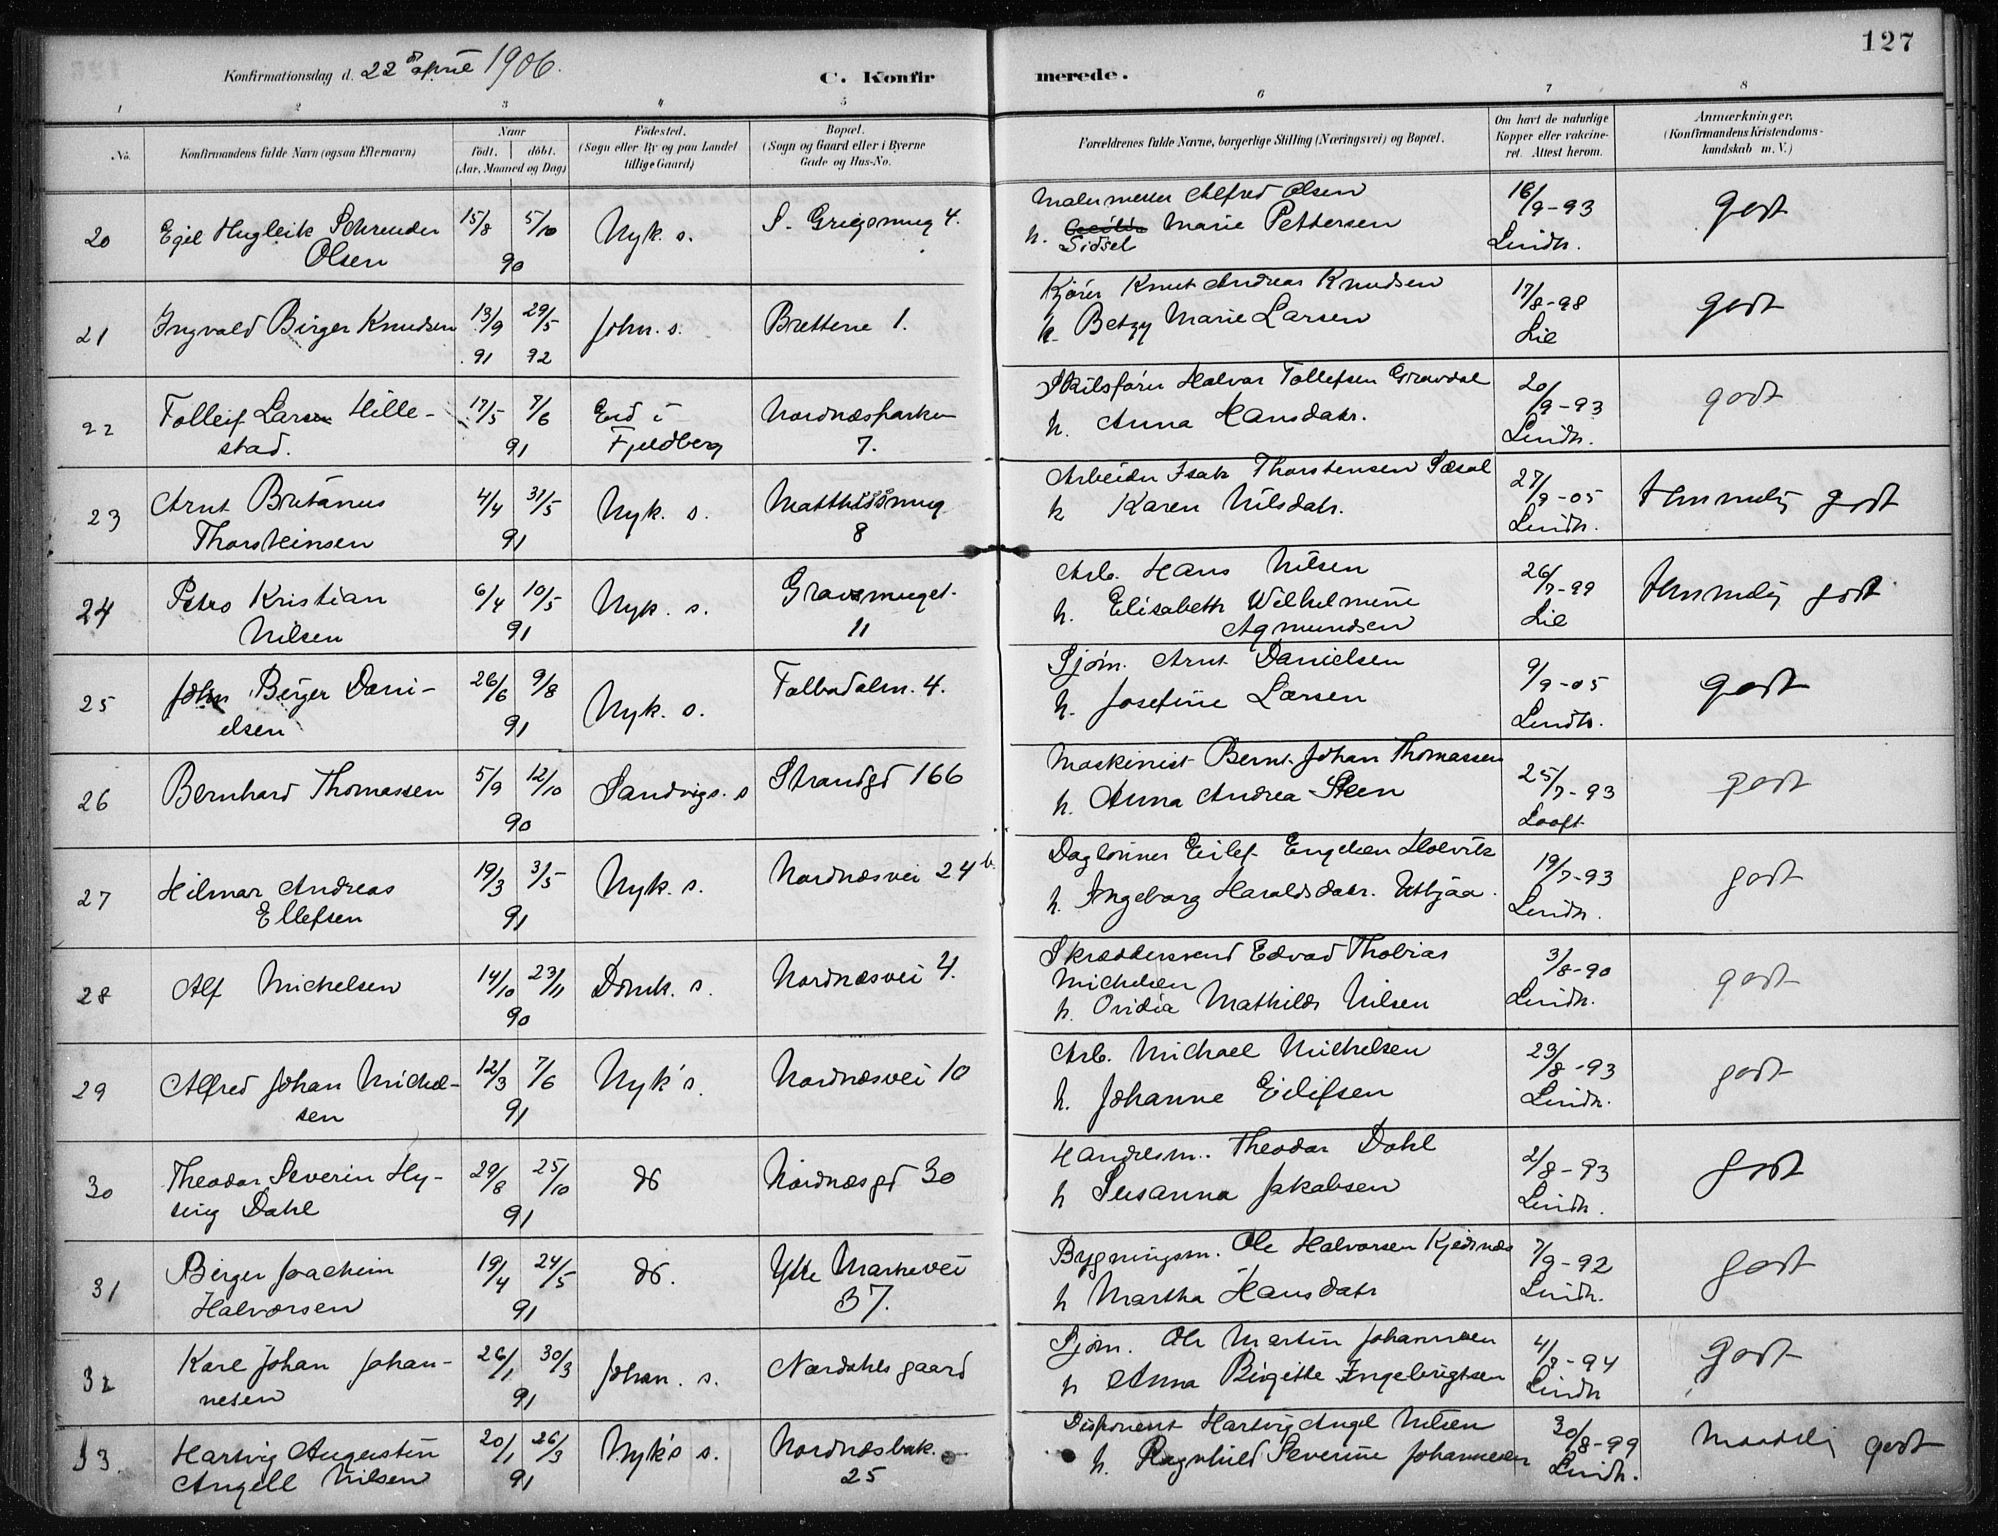 127
Konfirmationsdag d. 22de april 1906.
C. Konfirmerede.
1 2 3 4 5 6 7 8
No.
Konfirmandens fulde Navn (ogsaa Efternavn)
Naar
födt. döbt.
(Aar, Maaned og Dag)
Födested.
(Sogn eller By og paa Landet
tillige Gaard)
Bopæl.
(Sogn og Gaard eller i Byerne
Gade og Hus-No.
Forældrenes fulde Navne, borgerlige Stilling (Næringsvei) og Bopæl.
Om havt de naturlige
Kopper eller vakcine-
ret. Attest herom.
Anmærkninger,
(Konfirmandens Kristendoms-
kundskab m. V.)
20 Egil Hugleik Schreuder
Olsen
15/8 5/10
90
Nyk. s.
S. Griegsmug 4.
Malermester Alfred Olsen
h. Cecilda Marie Pettersen
Sidsel
16/9-93
Lindh.
godt
21 Ingvald Birger Knudsen
13/9 29/5
91 92
Joh. s.
Brettene 1.
Kjører Knut Andreas Knudsen
h. Betzy Marie Larsen
17/8-98
Lie
godt
22 Tolleif Larsen Hille-
stad.
17/5 7/6
91
Eid i
Fjeldberg
Nordnæsparken
7.
Skilsfører Halvar Tollefsen Gravdal
h. Anna Hansdatr.
20/9-93
Lindh.
godt
23 Arnt Britanus
Thorsteinsen
4/4 31/5
91
Nyk. s.
Matthismug
8
Arbeider Isak Thorstensen Sæsol
h Karen Nilsdatr.
27/9-05
Lindh.
temmelig godt
24 Petro Kristian
Nilsen
6/4 10/5
91
Nyk. s.
Gravsmuget
11
Arb. Hans Nilsen
h. Elisabeth Wilhelmine
Agmundsen
26/7-99
Lie
temmelig godt
25 John Birger Dani-
elsen
26/6 9/8
91
Nyk. s.
Tolbodalm. 4.
Sjøm. Arnt Danielsen
h. Josefine Larsen
9/9-05
Lindh.
godt
26 Bernhard Thomassen
5/9 12/10
90
Sandvigs. s
Strandgd 166
Maskinist Bernt Johan Thomassen
h. Anna Andrea Steen
25/7-93
Looft
godt
27 Hilmar Andreas
Ellefsen
19/3 3/5
91
Nyk. s.
Nordnæsvei 24 b.
Daglønner Eilef Engelsen Holvik
h. Ingeborg Haraldsdatr. Utbjåa.
19/7-93
Lindh.
godt
28 Alf Michelsen
14/10 23/11
90
Domk. s.
Nordnæsvei 4.
Skræddersvend Edvard Thobias
Michelsen
h. Ovidia Mathilde Nilsen
3/8-90
Lindh.
godt
29 Alfred Johan Michel-
sen
12/3 7/6
91
Nyk's.
Nordnæsvei 10
Arb. Michael Michelsen
h. Johanne Eilifsen
23/8-93
Lindh.
godt
30 Theodor Severin Hy-
sing Dahl
29/8 25/10
91
do
Nordnæsgd 30
Handelsm. Theodor Dahl
h Susanna Jakobsen
2/8-93
Lindh.
godt
31 Birger Joachim
Halvorsen
19/4 24/5
91
do.
Ytre Markevei
37.
Bygningsm. Ole Halvorsen Kjedsnæs
h Martha Hansdatr
7/9-92
Lindh.
godt
32 Karl Johan Johan-
nesen
26/1 30/3
91
Johan. s.
Nordahlsgaard
Sjøm. Ole Martin Johannesen
h Anna Birgitte Ingebrigtsen
4/8-94
Lindh
godt
33. Hartvig Augustin
Angell Nilsen
20/1 26/3
91
Nyk's s.
Nordnæsbak.
25
Disponent Hartvig Angel Nilsen
h. Ragnhild Severine Johannesen
30/8-99
Lindh.
Maadelig godt